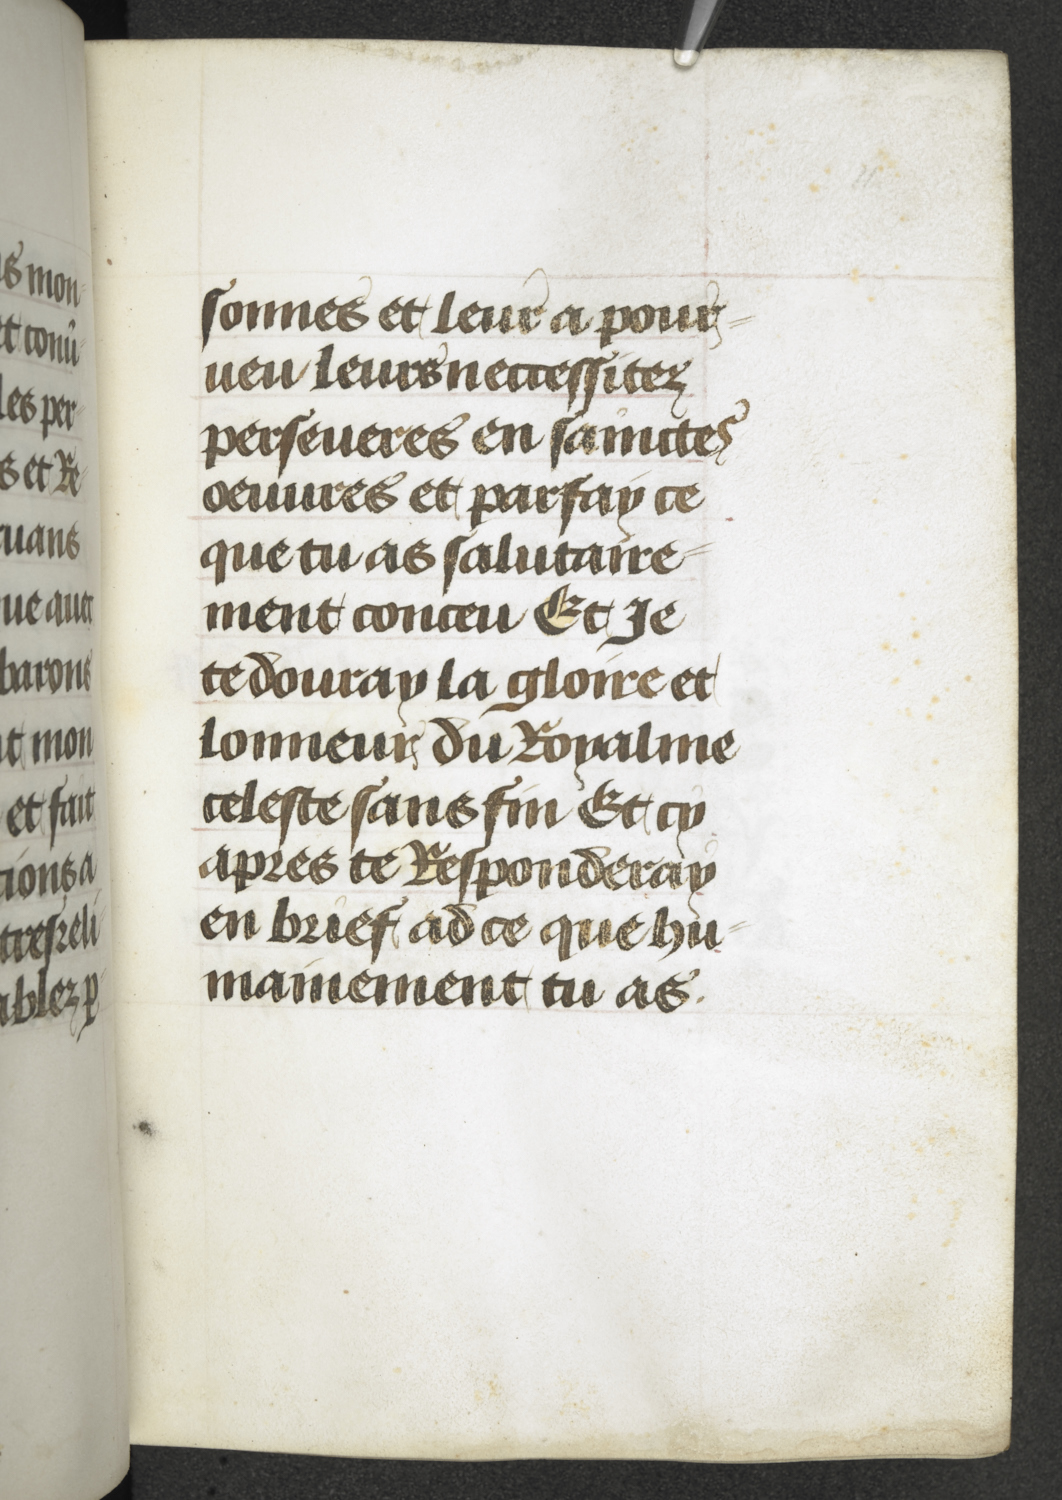 as mon-
et conu
les per-
s et Re-
uans
ue auec
barons
nt mon
et fait
tions a
tresreli-
ables p-
sonnes et leur a pour-
ueu leurs neccessitez
perseueres en sainctes
oeuures et parfay ce
que tu as salutaire-
ment conceu Et Je
te douray la gloire et
lonneur du Royalme
celeste sans fin Et cy
apres te Responderay
en brief ad ce que hu-
mainement tu as.